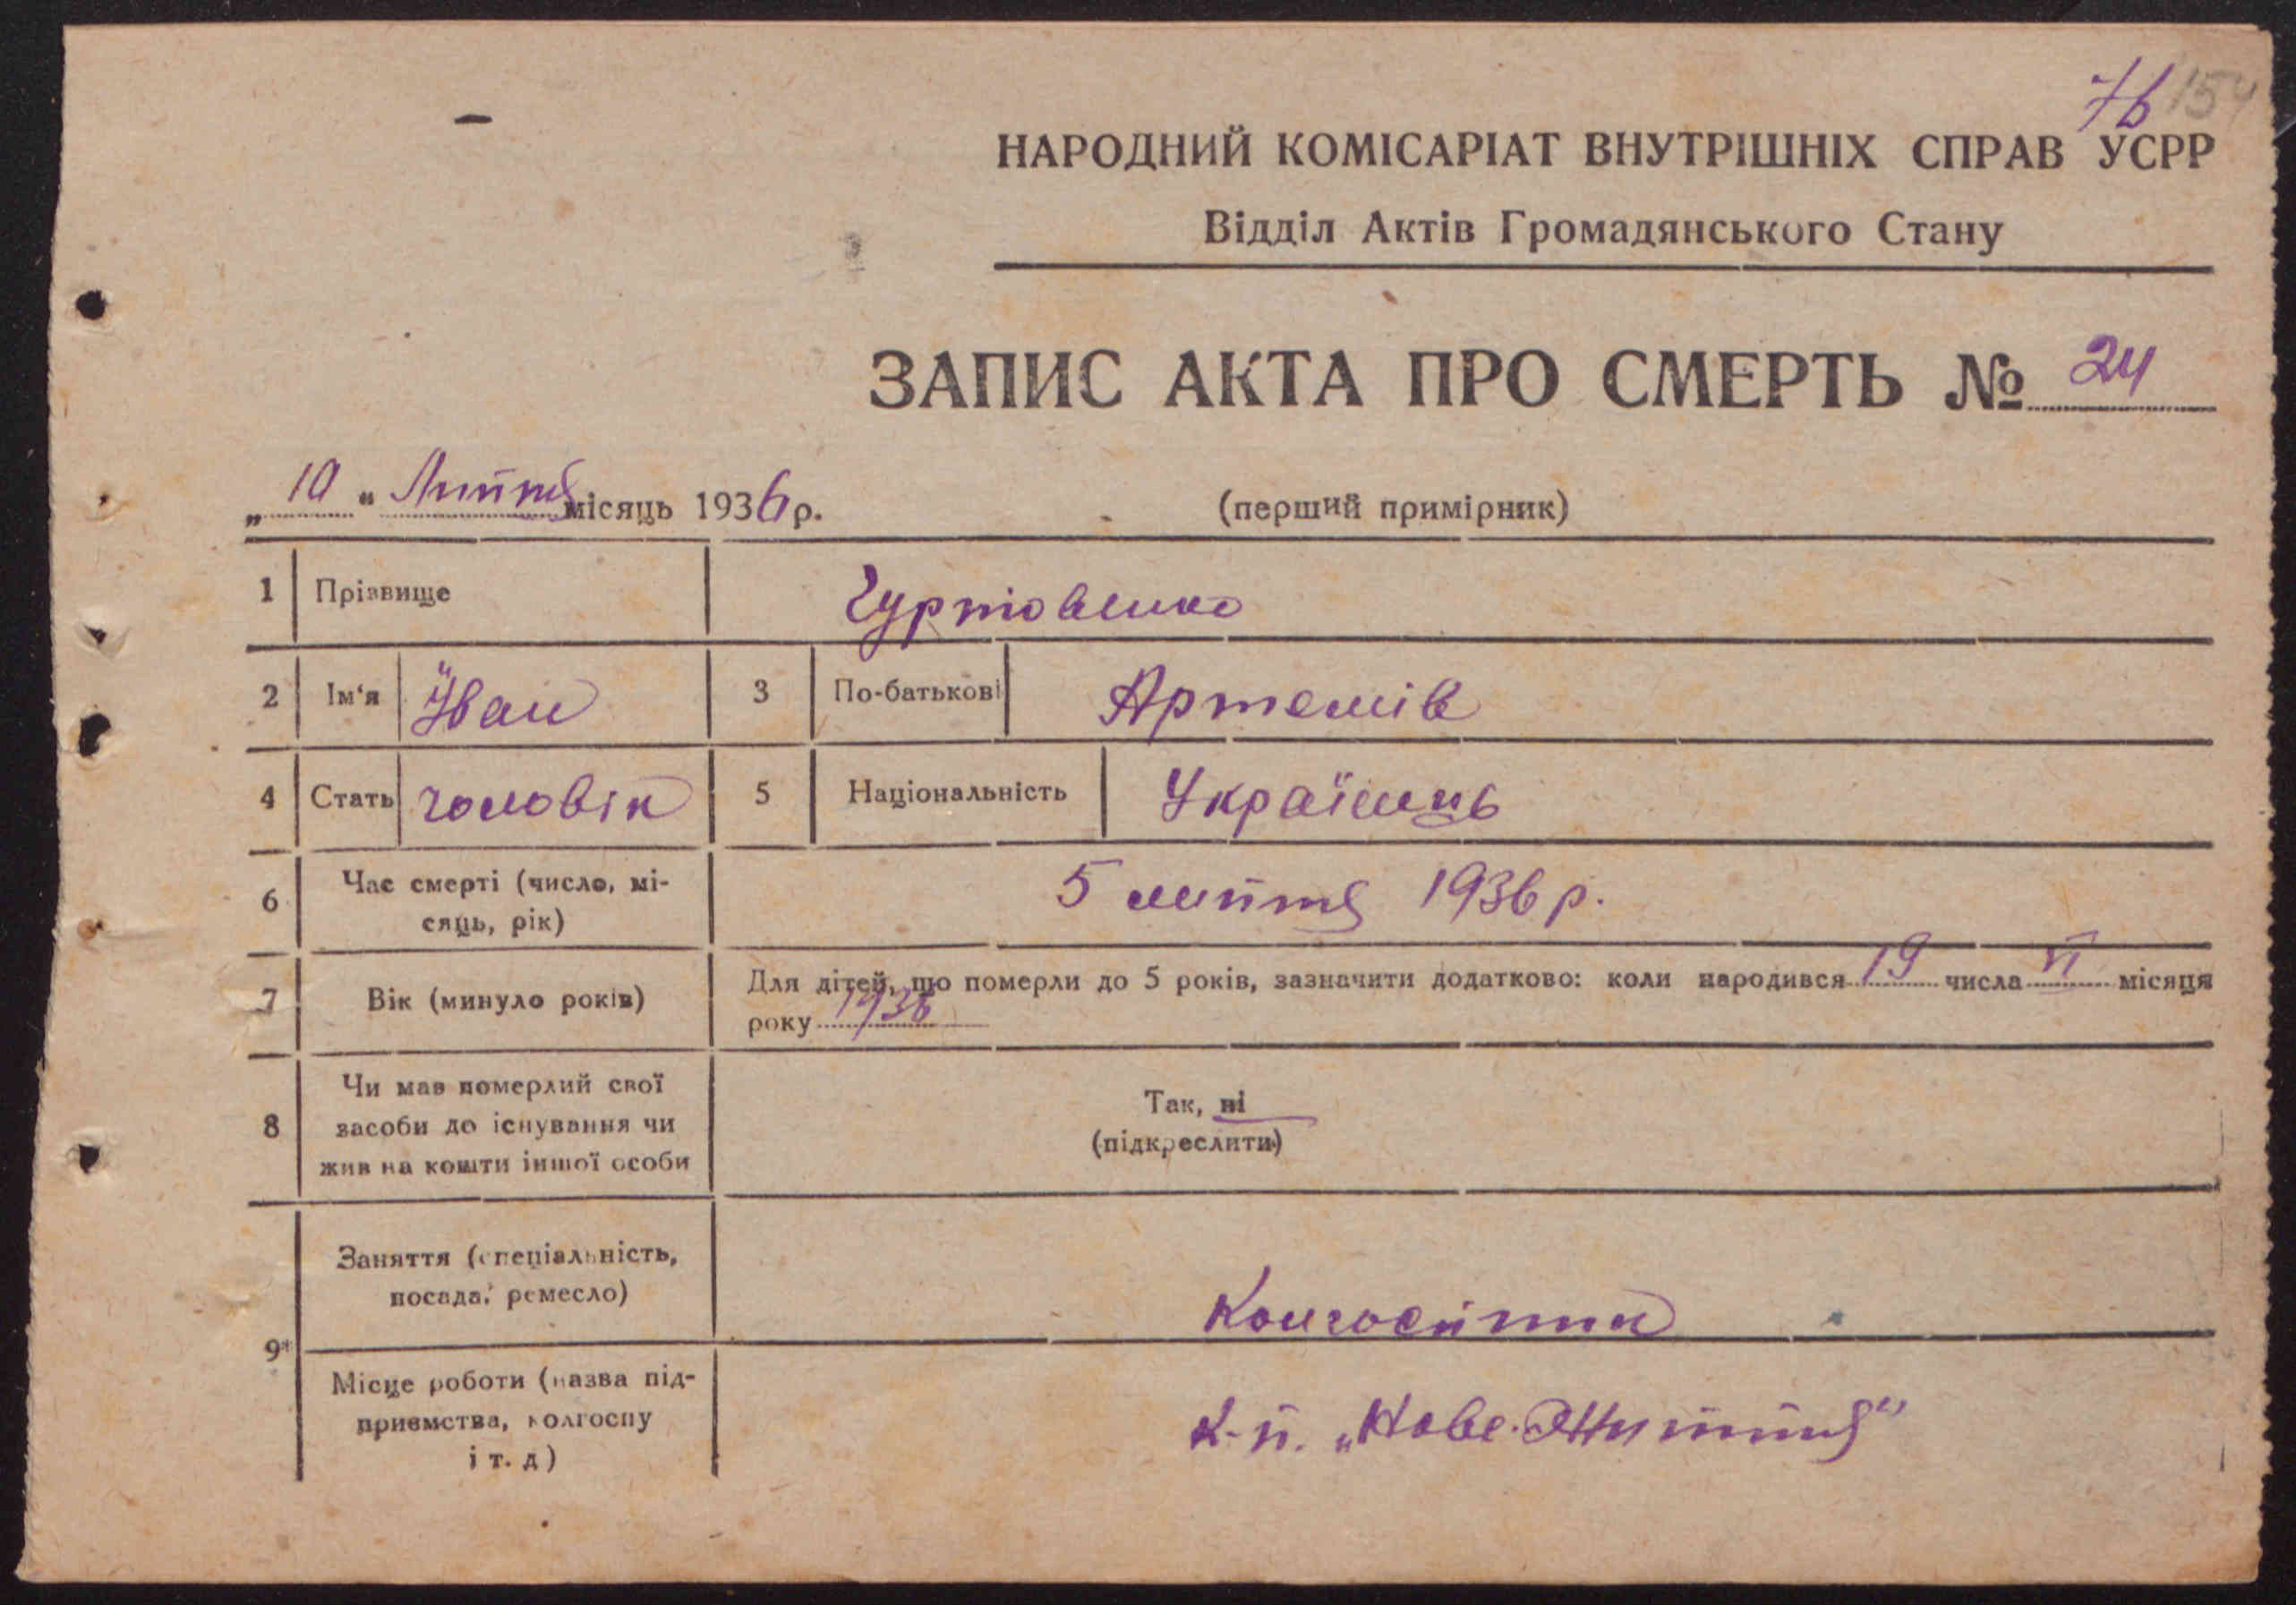 76 154
НАРОДНИЙ КОМІСАРІАТ ВНУТРІШНІХ СПРАВ УСРР
Відділ Актів Громадянського Стану
ЗАПИС АКТА ПРО СМЕРТЬ № 24
„10“ Липня місяць 1936 р. (перший примірник)
1 Прізвище Чуртовенко
2 Ім'я Іван 3 По-батькові Артемів
4 Стать чоловік 5 Національність Українець
6 Час смерті (число, мі-
сяць, рік) 5 липня 1936 р.
7 Вік (минуло років) Для дітей, що померли до 5 років, зазначити додатково: коли народився 19 числа VI місяця
року 1936
8 Чи мав померлий свої
засоби до існування чи
жив на кошти іншої особи
Так, ні
(підкреслити)
9* Заняття (спеціальність,
посада, ремесло) Колгоспник
Місце роботи (назва під-
приємства, колгоспу
і т. д) к-п. „Нове-Життя"